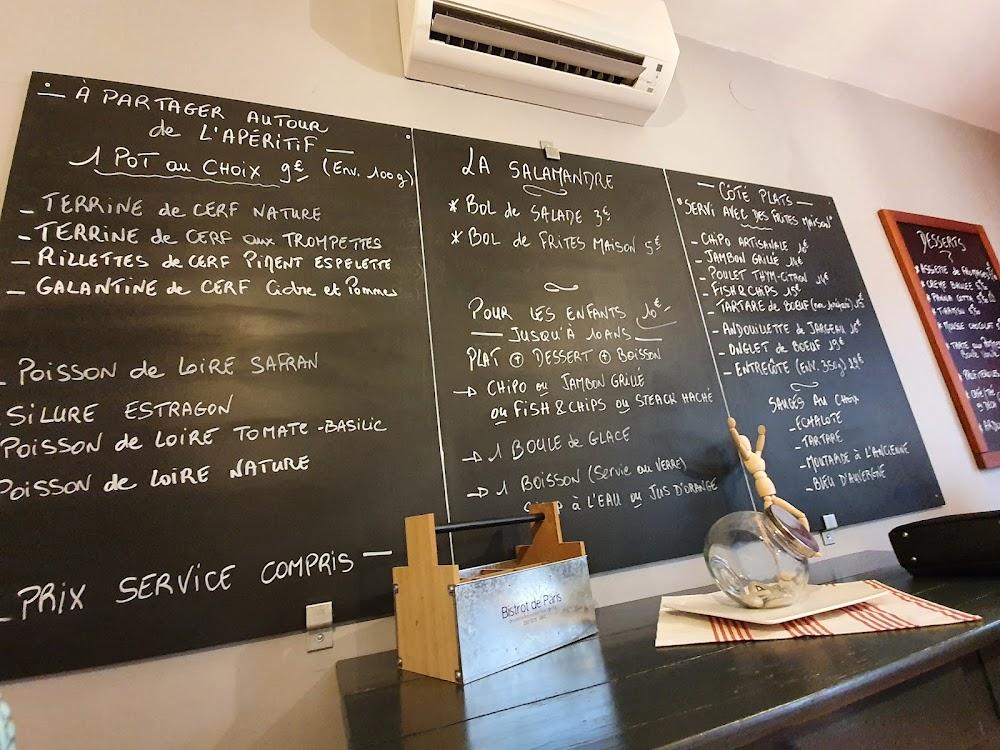 — À PARTAGER AUTOUR
de L'APÉRITIF —
1 POT au CHOIX 9€ (Env. 100g)
- TERRINE de CERF NATURE
- TERRINE de CERF aux TROMPETTES
- RILLETTES de CERF PIMENT ESPELETTE
- GALANTINE de CERF Cidre et Pommes
- POISSON de LOIRE SAFRAN
SILURE ESTRAGON
POISSON de LOIRE TOMATE-BASILIC
POISSON de LOIRE NATURE
- PRIX SERVICE COMPRIS —
LA SALAMANDRE
* BOL de SALADE 3€
* BOL de FRITES MAISON 5€
POUR LES ENFANTS 10€
— JUSQU'À 10ANS —
PLAT + DESSERT + BOISSON
→ CHIPO ou JAMBON GRILLÉ
ou FISH & CHIPS ou STEACK HACHÉ
→ 1 BOULE de GLACE
→ 1 BOISSON (Servie au VERRE)
À L'EAU ou JUS D'ORANGE
— CÔTÉ PLATS —
"SERVI AVEC DES FRITES MAISON"
- CHIPO ARTISANALE
- JAMBON GRILLÉ 14€
- POULET THYM-CITRON 14€
- FISH & CHIPS 15€
- TARTARE de BOEUF
- ANDOUILLETTE de JARGEAU
- ONGLET de BOEUF 19€
- ENTRECÔTE (ENV. 350g)
SAUCES AU CHOIX
- ECHALOTE
- TARTARE
- MOUTARDE à L'ANCIENNE
- BLEU D'AUVERGNE
DESSERTS
* ASSIETTE de FROMAGES
* CREME BRULEE
* PANNA COTTA
* TIRAMISU
* MOUSSE CHOCOLAT
* TARTE aux
* PROFITEROLES
Bistrot de Paris